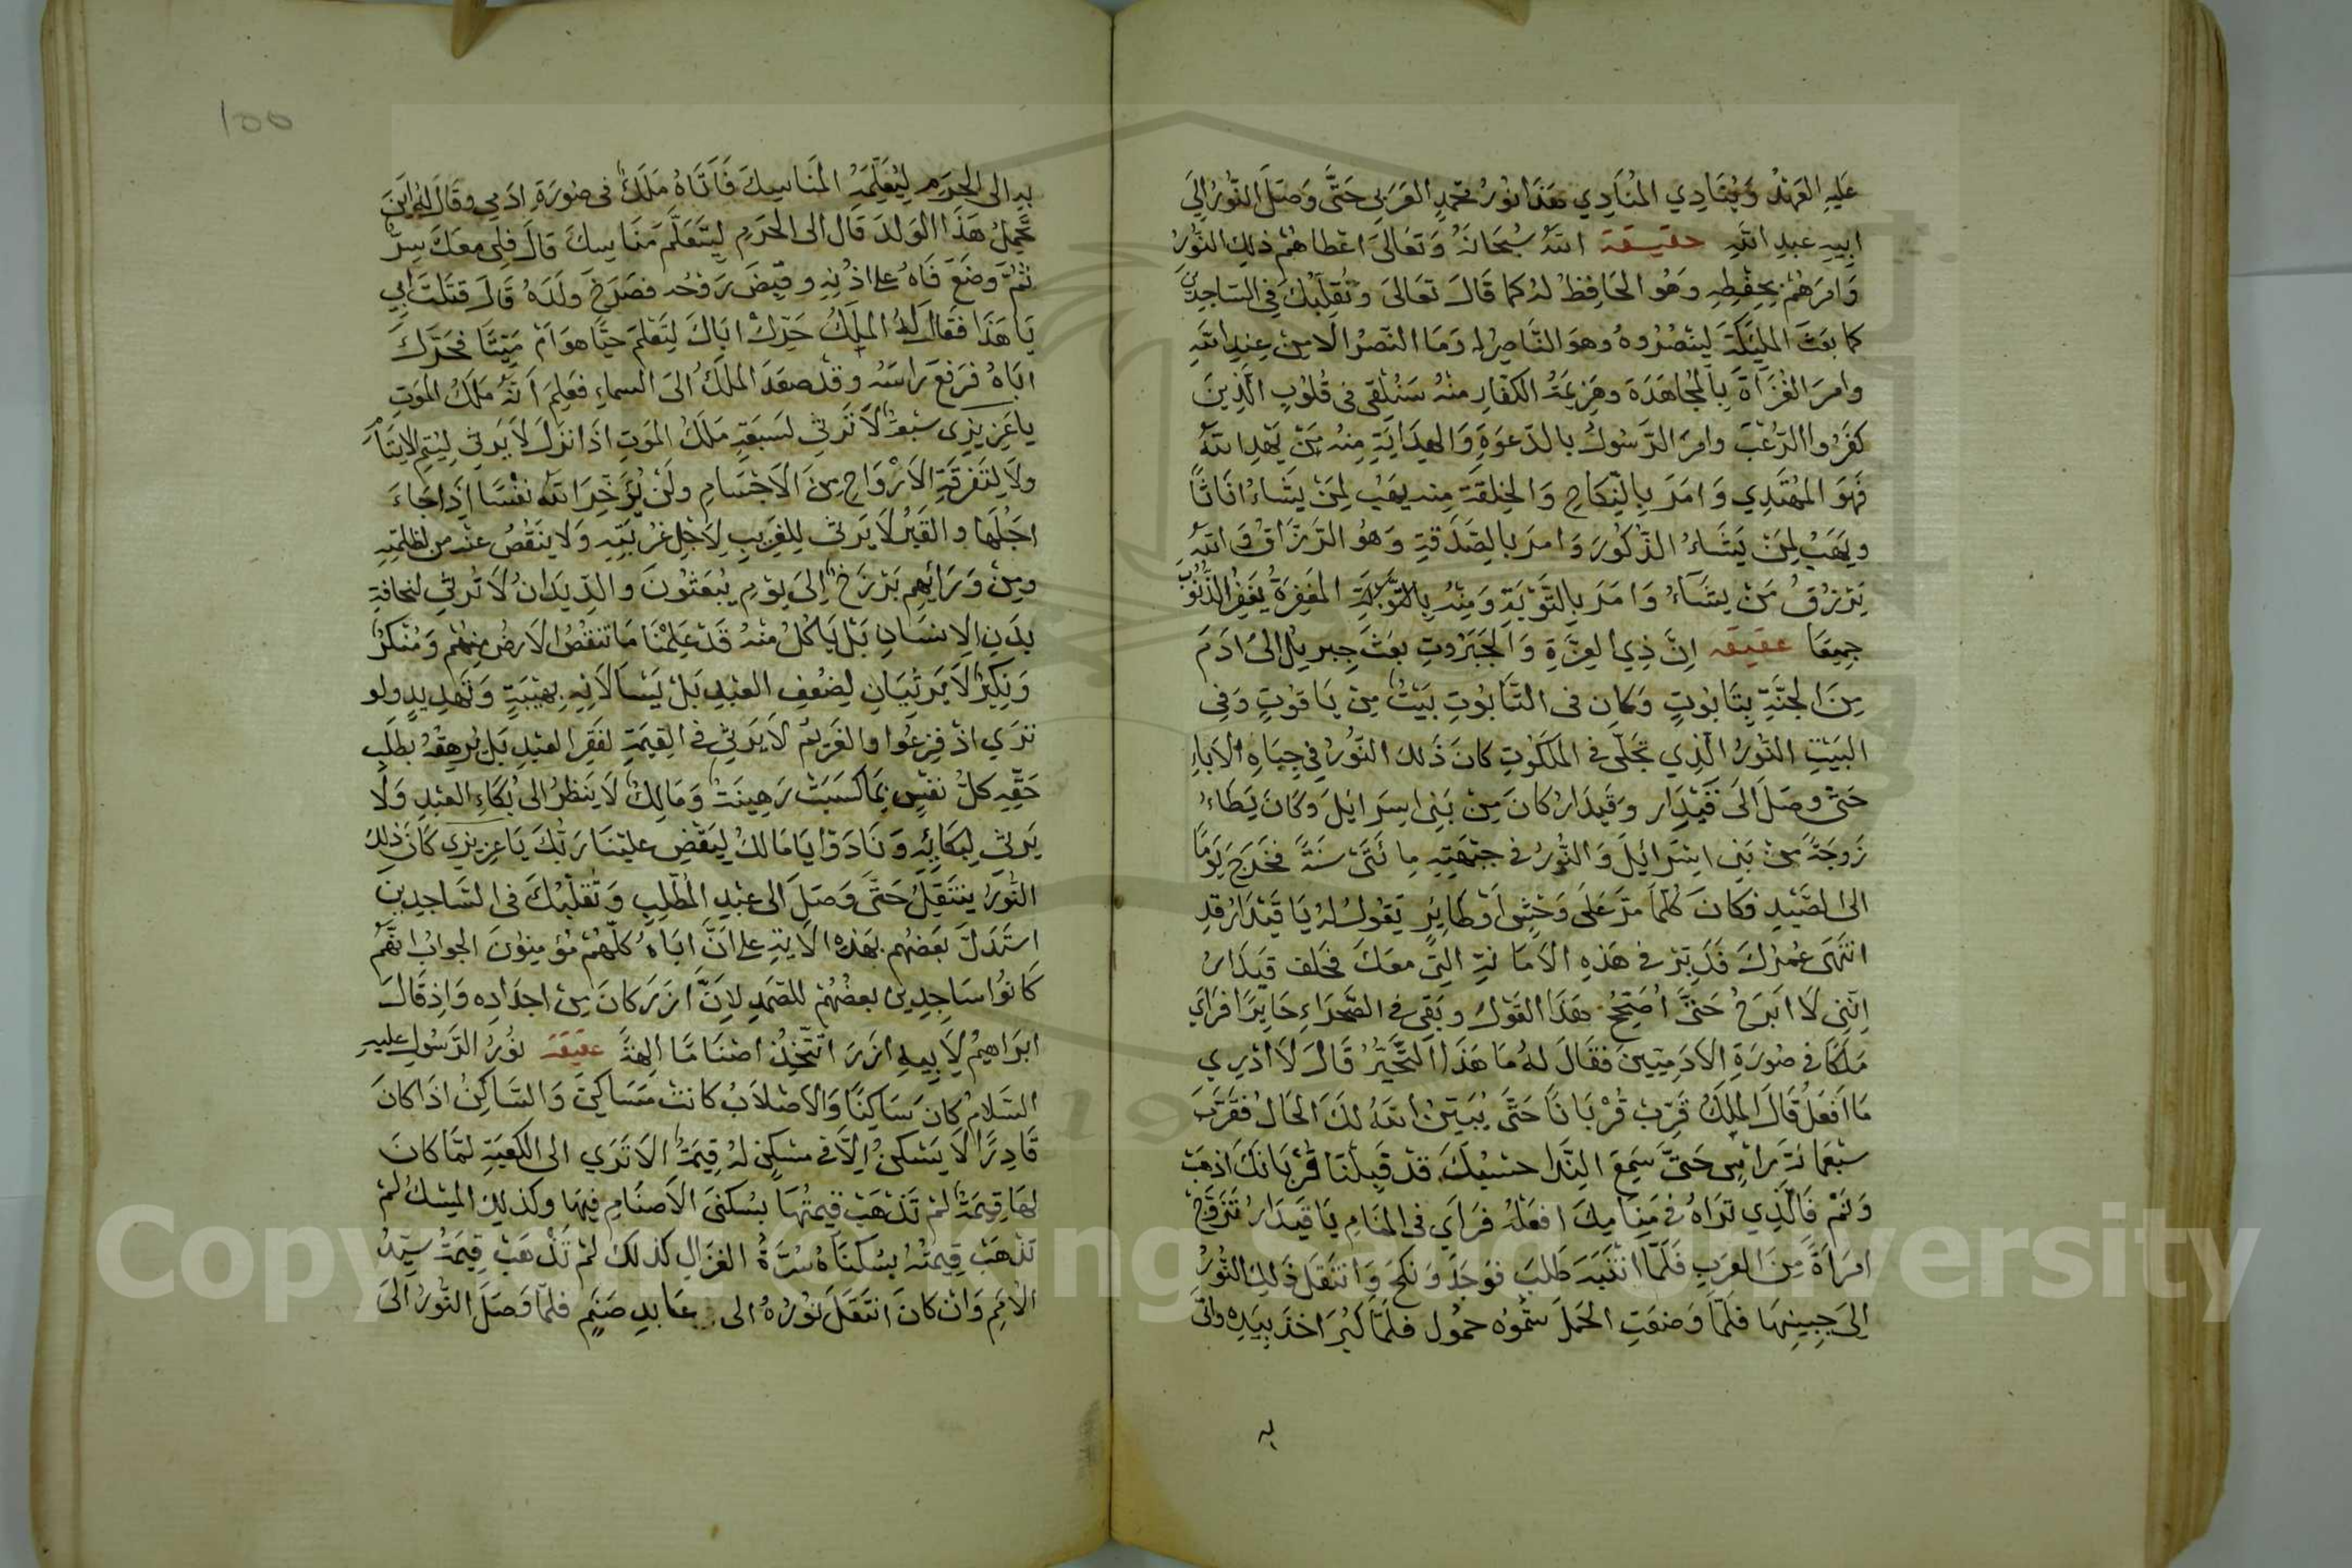 عَلَيهِ العَهْدُ وَيُنَادِي المُنَادِي هَذَا نُورُ مُحَمَّدٍ العَرَبِي حَتَّى وَصَلَ النُّورُ اِلَى
اَبِيهِ عَبدِ اللَّهِ حقيقة اللَّهُ سُبحَانَهُ وَتَعَالَى اعْطَاهُمْ ذلِكَ النُّورُ
وَامَرَهُمْ بِحِفْظِهِ وَهُوَ الحَافِظُ لَهُ كَمَا قَالَ تَعَالَى وَتُقَلِّبَكَ فِي السَّاجِدِينَ
كما بَعَثَ المَلِيكَةَ لِيَنْصُرُوهُ وَهوَ النَّاصِرُ لَهُ وَمَا النَّصْرُ اِلَّا مِنْ عِنْدِ اللَّهِ
وامرَ الغُزَاةَ بِالمُجَاهَدَةِ وهَزِيمَةُ الكفَّارِ منْهُ سَنُلْقِي فِى قُلُوبِ الَّذِينَ
كفَرُوا الرُّعْبَ وامرَ الرَّسُولَ بالدَّعوَةِ وَالهِدَايَةِ مِنهُ مَنْ يَهْدِ اللَّهُ
فَهوَ المُهْتَدِي وَامَرَ بِالنِّكَاحِ وَالخِلقَةَ مِنه يَهَبُ لِمَنْ يَشَاءُ اِنَاثًا
ويَهَبُ لِمَنْ يَشَاءُ الذُّكُورَ وَامرَ بِالصَّدَقَةِ وَهُوَ الرَّزَّاقُ وَاللَّهُ
يَرْزُقُ مَنْ يشَآءُ وَامَرَ بِالتَّوْبَةِ وَمِنْهُ بِالتَّوْبَةِ المَغْفِرَةُ يَغْفِرُ الذُّنُوبَ
جمِيعًا عقيقه اِنَّ ذِي العِزَّةِ وَالجَبَرُوتِ بعَثَ جِبرِيلَ الَى ادَمَ
مِنَ الجَنَّةِ بِتَابُوتٍ وَكان فى التَّابُوتِ بَيْتٌ مِنْ يَاقوُتٍ وَفِى
البَيْتِ النُّورُ الَّذِي تجَلَّى فِى المَلكوتِ كانَ ذَلكَ النُّورُ فِي جِبَاهِ الاَبَاءِ
حَتى وصَلَ الَى قَيْدَار وَقَيدَارُ كَانَ مِنْ بَنِى اسرَائِيلَ وَكَانَ يَطَاءُ
زَوجَةً مِنْ بَنِي اسْرَائِيلَ وَالنُّورُ فى جَبْهَتِهِ مِائَتَىْ سَنَةً فخَرَجَ يَومًا
الى الصَّيْدِ فكَانَ كلَّمَا مَرَّ عَلَى وَحْشٍ اَوْ طَايرٍ يَقُولُ لَهُ يَا قَيْدَارُ قَدِ
انْتَهَى عُمْرُكَ فَدَبِّرْ فى هَذِهِ الاَمَانةِ التِّى مَعَكَ فحَلفَ قَيدَارُ
اِنَّنِى لَا ابَرَحُ حَتَّى اُصَحِّحُ هَذَا القَوْلَ وبَقَى فى الصَّحرَاءِ حَايرًا فرَاَي
مَلَكًا فى صُورَةِ الادَمِيّينَ فقَالَ لَهُ مَا هَذَا التَّحَيُّرُ قَالَ لَا ادْرِي
مَا اَفعَلُ قَالَ المَلكُ قَرِّبْ قُرْبَانًا حَتَّى يُبَيِّنَ اللَّهُ لَكَ الحَالُ فَقَرَّبَ
سَبْعَمائةِ رَاسٍ حَتىَّ سَمِعَ النِّدَا حسْبُكَ قَدْ قَبِلْنَا قُرْبَانَكَ اذهَبْ
وَنَمْ فَالَّذِي تَرَاهُ فى مَنَامِكَ افعَلْهُ فرَاَي فى المنَامِ يَا قَيدَارُ تَزَوَّجْ
امرَاَةً مِنَ العَرَبِ فَلَمَّا انْتَبَهَ طَلَبَ فوَجَدَ وَنكحَ وَانْتَقَلَ ذَلِكَ النُّورُ
اِلىَ جَبِينِهَا فلَمَّا وَضَعَتِ الحَملَ سَمُّوهُ حمُول فلمَّا كَبُرَ اخَذَ بِيَدِهِ وَاتَى
به
١٥٥
بهِ الى الحَرَمِ لِيُعَلِّمَهُ المَنَاسِكَ فَاَتَاهُ مَلَكٌ فى صُورَةِ ادَمِي وقَالَ لهُ اَيْنَ
تحْمِلُ هَذَا الوَلَدَ قَالَ الى الحَرَمِ لِيَتَعَلَّمَ مَنَاسِكَ قَالَ فَلِي مَعَكَ سِرٌّ
ثُمَّ وَضَعَ فَاهُ على اذْنِهِ وقبَضَ رَوحُه فصَرَخَ وَلَدَهُ قَالَ قتَلْتَ ابِي
يَا هَذَا فَقَالَ لَهُ المَلَكُ حَرِّكْ ابَاكَ لِتَعْلَمَ حَيًّا هوَ اَمْ مَيّتًا فحَرَّكَ
ابَاهُ فرَفعَ رَاسَهُ وقدْ صعَدَ المَلَكُ الىَ السماءِ فعَلِمَ اَنَّهُ مَلَكُ المَوتِ
ياعَزِيزِى سَبْعَةٌ لاَ تَرْثِي لسَبعَةٍ مَلَكُ المَوتِ اذَا نَزَلَ لاَ يَرثِى لِيُتمِ
ولاَ لِتَفرقَةِ الاَرْوَاحِ مِنَ الاَجْسَامِ ولَنْ يُؤَخِّرَ اللَّهُ نفْسًا اِذَا جَاءَ
اجَلُهَا والقَبْرُ لَا يَرثِى لِلغَرِيبِ لاَجْلِ غُرْبَتِهِ وَلَا ينَقُصُ عنْهُ من ظلمَتِهِ
ومِنْ وَرَائِهِم بَرْزَخٌ اِلىَ يَوْمِ يُبعَثُونَ والدِّيدَانُ لاَ تَرْثِي لنحَافَةِ
بدَنِ الاِنسَانِ بَلْ يَاكُلُ مِنْهُ قَدْ عَلِمْنَا مَا تَنْقُصُ الاَرضُ مِنْهُم وَمُنْكرٌ
وَنَكِيرٌ لَا يَرثِيَانِ لِضُعْفِ العَبْدِ بَلْ يَسْاَلاَنِهِ بِهيْبَةٍ وَتَهدِيدٍ ولو
تَرَي اذْ فزِعُوا والغَرِيمُ لاَ يَرثِى فى القِيمَةِ لفَقرِ العَبْدِ بَلْ يُرهِقُهُ بطَلَبِ
حَقّهِ كلُّ نفْسٍ بِمَا كَسَبَتْ رَهِينَةٌ وَمَالِكٌ لَا يَنظرُ الى بُكَاءِ العَبْدِ وَلَا
يَرثى لِبكَائِهِ وَنَادَوْا يَا مَالكُ لِيَقْضِ عَلَيْنَا رَبُّكَ يَا عزِيزِي كَانَ ذلكَ
النُّورُ ينْتَقِلُ حَتَّى وَصَلَ الى عبْدِ المُطَّلِبِ وَتُقَلّبُكَ فى السَّاجِدِينَ
استَدَلَّ بَعضُهُم بِهَذِهِ الاَيةِ على اَنَّ ابَاهُ كلّهُمْ مُؤمِنونَ الجوابُ انَّهُمْ
كَانُوا سَاجِدِينَ بعضُهُمْ للصَّنَمِ لاِنَّ ازَرَ كانَ مِنْ اجدَادِه وَاِذ قَالَ
ابرَاهيمُ لاَبِيهِ ازَرَ اتَتَّخِذُ اصْنَامًا الهةً عقيقة نُورُ الرَّسُولِ عليهِ
السَّلامُ كانَ سَاكِنًا وَالاَصْلاَبُ كانتْ مَسَاكِنَ وَالسَّاكِنُ اذَا كانَ
قَادِرًا لاَ يَسْكنُ اِلَّا فى مَسْكنٍ لهُ قِيمَةٌ الاَ تَرَي الى الكَعبَةِ لمَّا كانَ
لهَا قِيمَةٌ لمْ تَذْهَبْ قِيمَتُهَا بسُكنَى الاَصنَامِ فِيهَا وكذلِكَ المِسْكُ لمْ
تَذْهَبْ قيمتُهُ بسُكنَاهُ سُرَّةُ الغزَالِ كذلكَ لمْ تَذْهَبْ قِيمَةُ سيّدُ
الاُمَمِ وَانْ كانَ انْتَقَلَ نُورُهُ الى عَابدِ صَنَمٍ فلمَّا وَصَلَ النُّورُ الىَ
Copyright © King Saud University